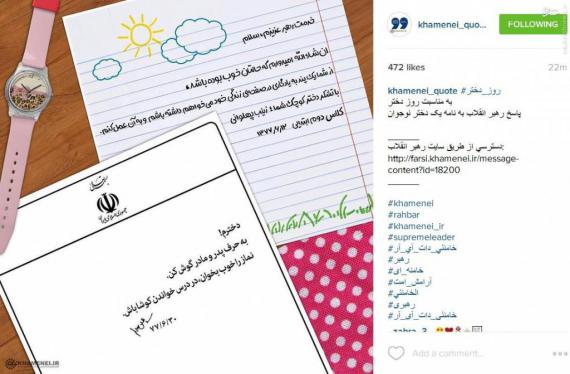 خدمت رهبر عزیزم، سلام
ان شاء الله امیدوارم که حالتان خوب بوده باشد.
از شما یک پند به یادگاری در صفحه‌ی زندگی خود می‌خواهم داشته باشم و به آن عمل کنم.
با تشکر دختر کوچک شما؛ زینب پهلوانی
کلاس دوم ابتدایی
جمهوری اسلامی ایران
دخترم!
به حرف پدر و مادر گوش کن.
نماز را خوب بخوان، در درس خواندن کوشا باش.
۷۷/۶/۳۰
KHAMENEI.IR
khamenei_quo...
FOLLOWING
472 likes
22m
khamenei_quote #روز_دختر
به مناسبت روز دختر
پاسخ رهبر انقلاب به نامه یک دختر نوجوان
دسترسي از طريق سايت رهبر انقلاب:
http://farsi.khamenei.ir/message-
content?id=18200
#khamenei
#rahbar
#khamenei_ir
#supremeleader
#خامنئي_دات_آي_آر
#رهبر
#خامنه_ای
#آرامش_است
#الخامنئي
#رهبری
#خامنئي_دات_آي_آر
Add a comment...